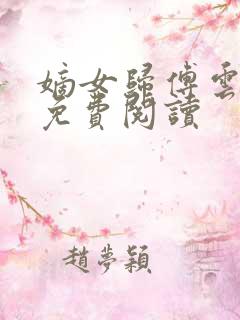 嫡女歸傅雲
免費閱讀
趙夢穎